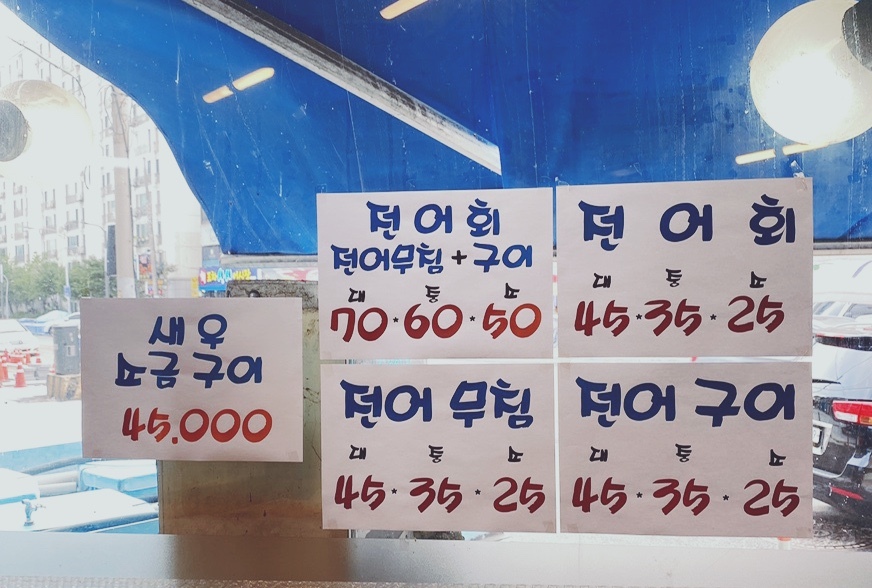 전 어 회
전어무침 + 구이
대 중 소
70 · 60 · 50
전 어 회
대 중 소
45 · 35 · 25
새 우
소금 구이
45,000
전어 무침
대 중 소
45 · 35 · 25
전어 구이
대 중 소
45 · 35 · 25